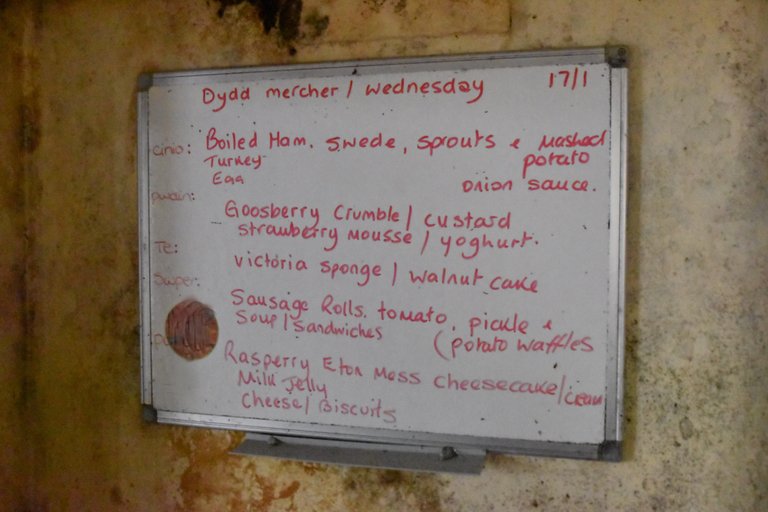 Dydd mercher / Wednesday 17/1
cinio: Boiled Ham. Swede, Sprouts & Mashed
Turkey potato
Egg onion sauce.
pwdin:
Goosberry Crumble / custard
strawberry mousse / yoghurt.
Te: victoria sponge / walnut cake
Swper: Sausage Rolls. tomato, pickle &
Soup / Sandwiches (potato waffles
Rasperry Eton Mess cheesecake / cream
Milk Jelly
Cheese / Biscuits